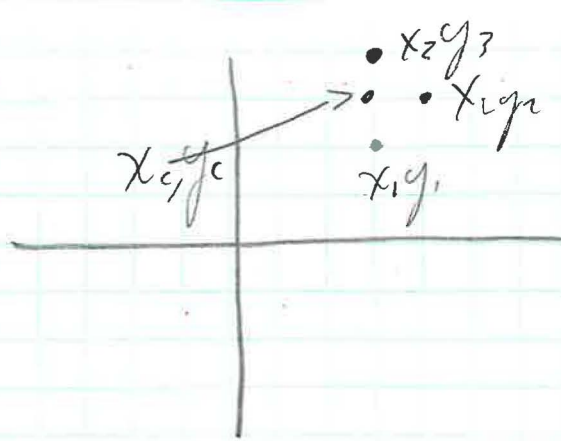 x₂y₃
x₂y₂
x_c, y_c
x₁y₁